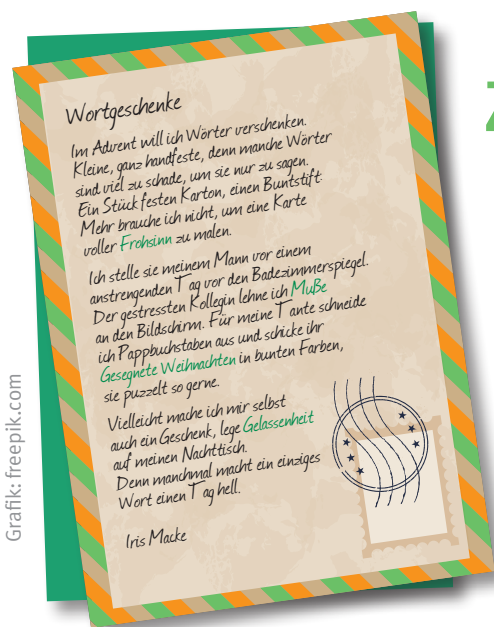 Wortgeschenke
Im Advent will ich Wörter verschenken.
Kleine, ganz handfeste, denn manche Wörter
sind viel zu schade, um sie nur zu sagen.
Ein Stück festen Karton, einen Buntstift:
Mehr brauche ich nicht, um eine Karte
voller Frohsinn zu malen.
Ich stelle sie meinem Mann vor einem
anstrengenden Tag vor den Badezimmerspiegel.
Der gestressten Kollegin lehne ich Muße
an den Bildschirm. Für meine Tante schneide
ich Pappbuchstaben aus und schicke ihr
Gesegnete Weihnachten in bunten Farben,
sie puzzelt so gerne.
Vielleicht mache ich mir selbst
auch ein Geschenk, lege Gelassenheit
auf meinen Nachttisch.
Denn manchmal macht ein einziges
Wort einen Tag hell.
Iris Macke
Grafik: freepik.com